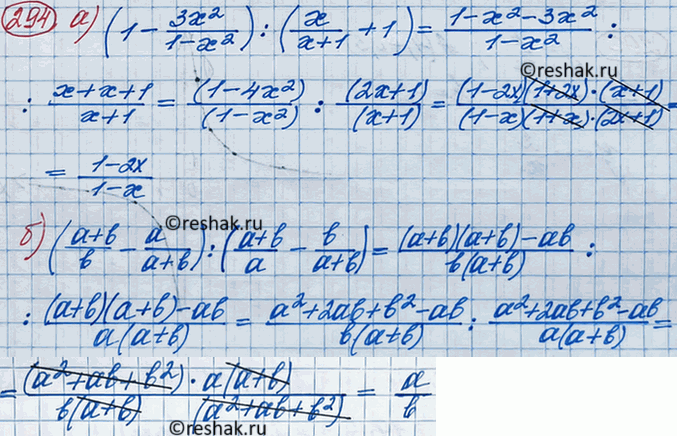 294 а) (1 - 3x²/(1-x²)) : (x/(x+1) + 1) = (1-x²-3x²)/(1-x²) :
©reshak.ru
: (x+x+1)/(x+1) = (1-4x²)/(1-x²) : (2x+1)/(x+1) = ((1-2x)(1+2x)·(x+1))/((1-x)(1+x)·(2x+1)) =
= (1-2x)/(1-x)
©reshak.ru
б) ((a+b)/b - a/(a+b)) : ((a+b)/a - b/(a+b)) = ((a+b)(a+b)-ab)/(b(a+b)) :
: ((a+b)(a+b)-ab)/(a(a+b)) = (a²+2ab+b²-ab)/(b(a+b)) : (a²+2ab+b²-ab)/(a(a+b)) =
©reshak.ru
= ((a²+ab+b²)·a(a+b))/(b(a+b)(a²+ab+b²)) = a/b